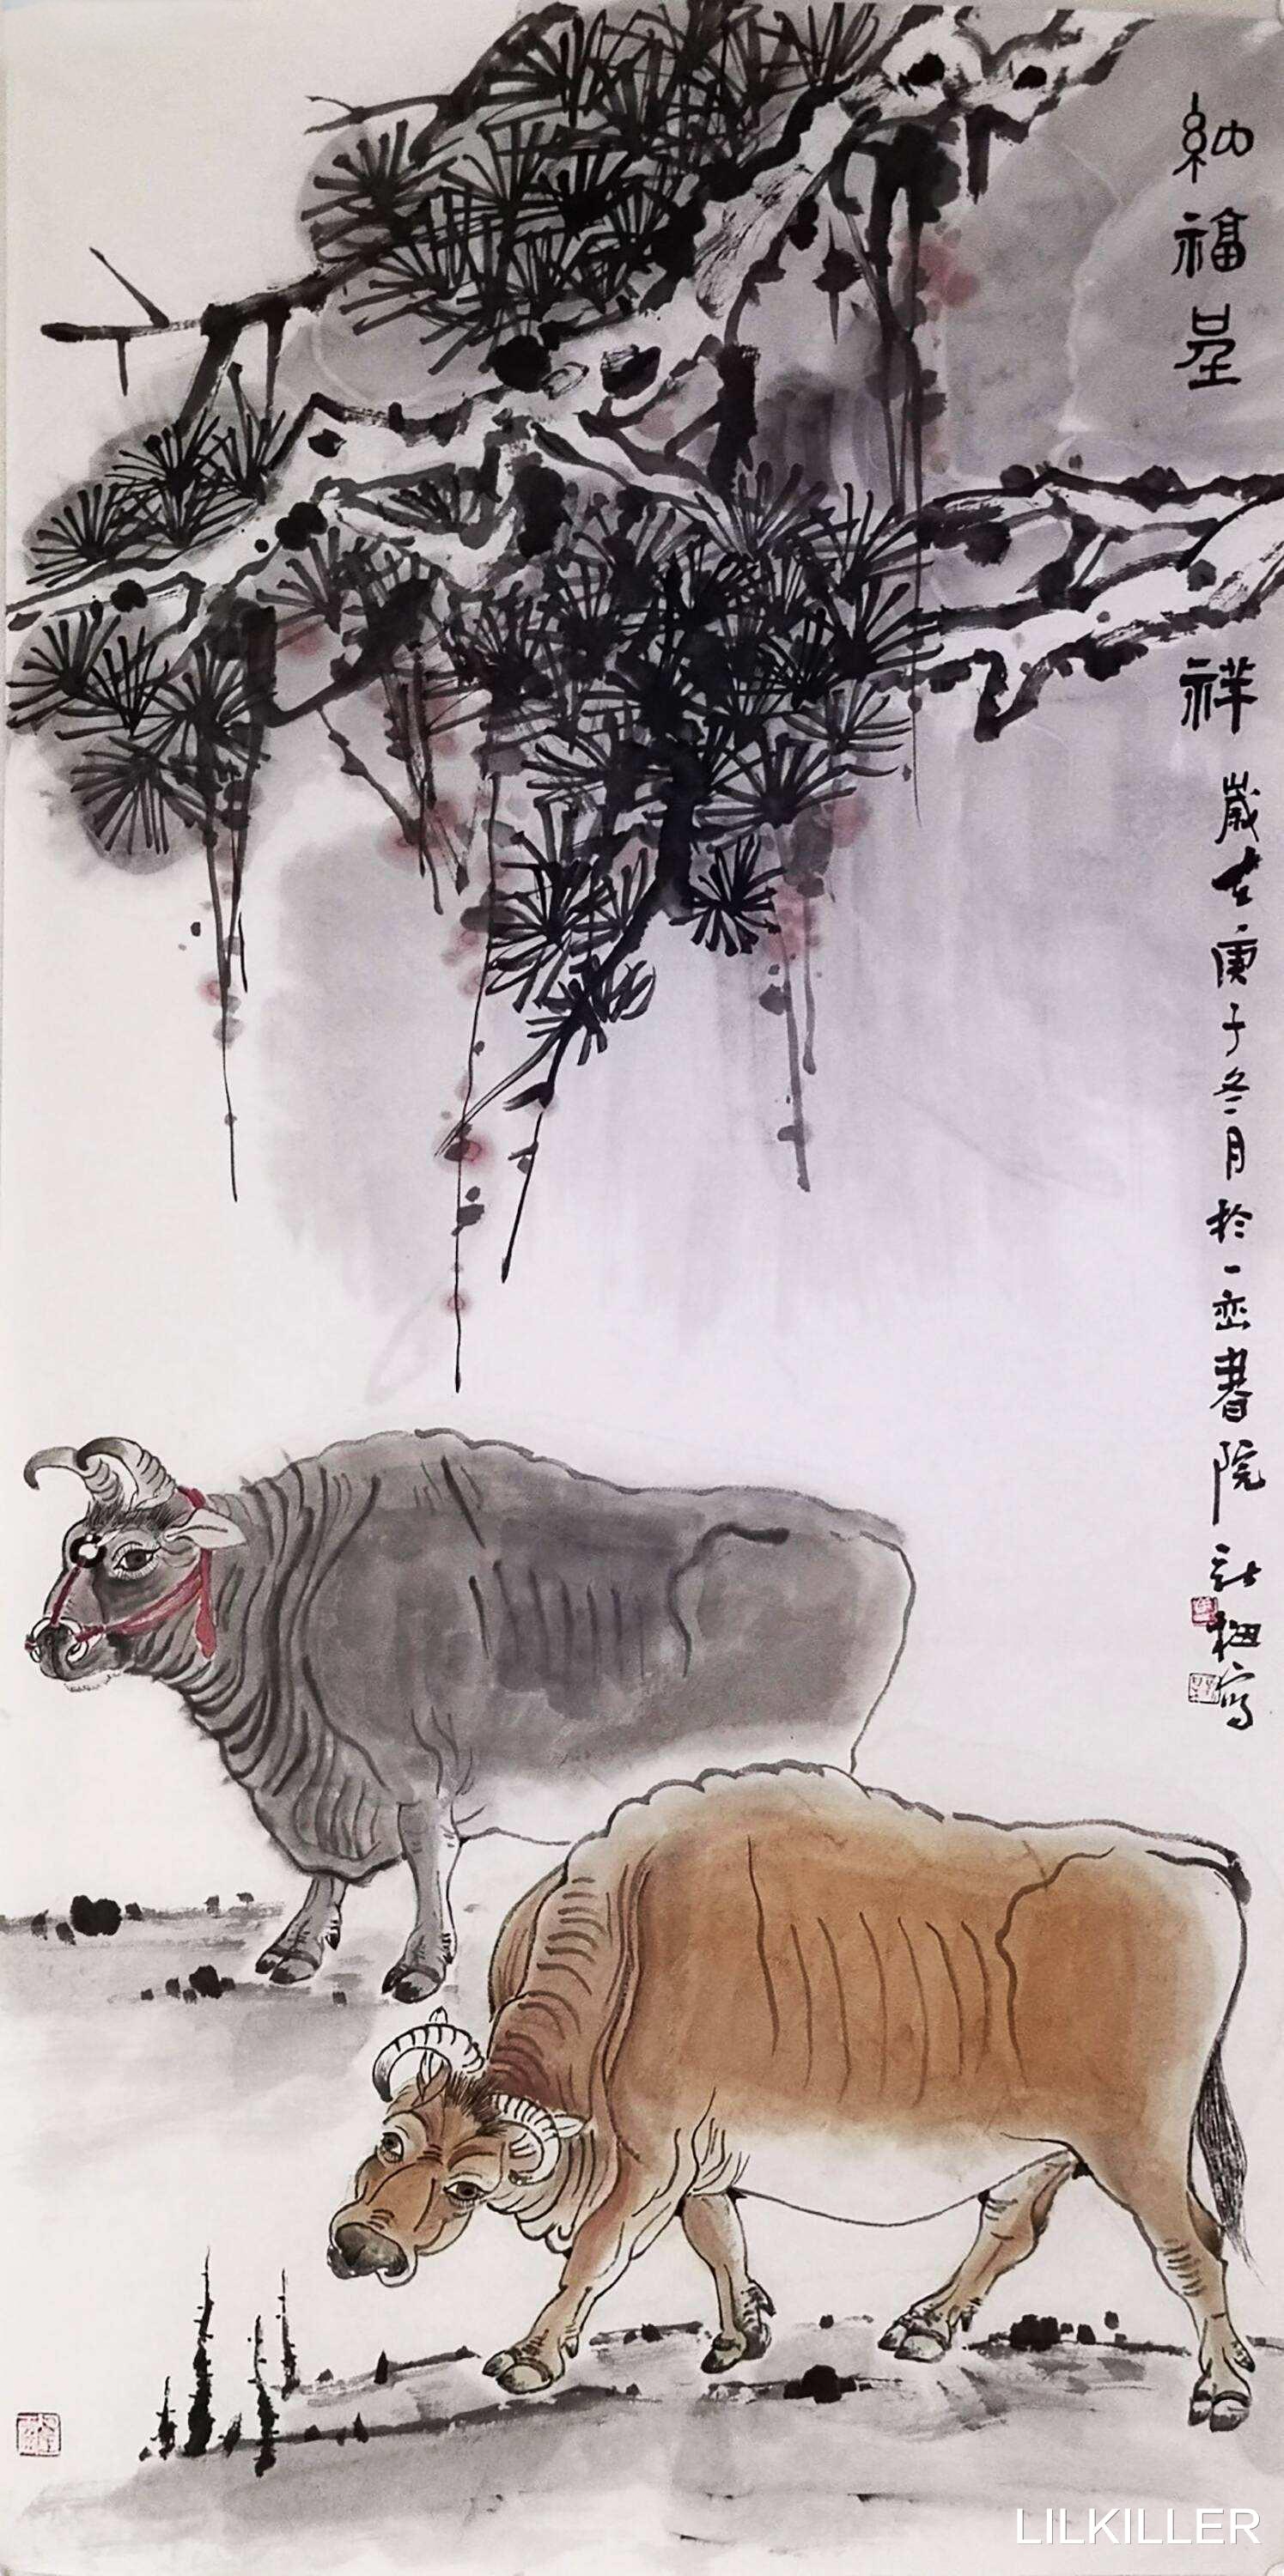 納福呈祥
歲在庚子冬月於一峦書院 寫
LILKILLER